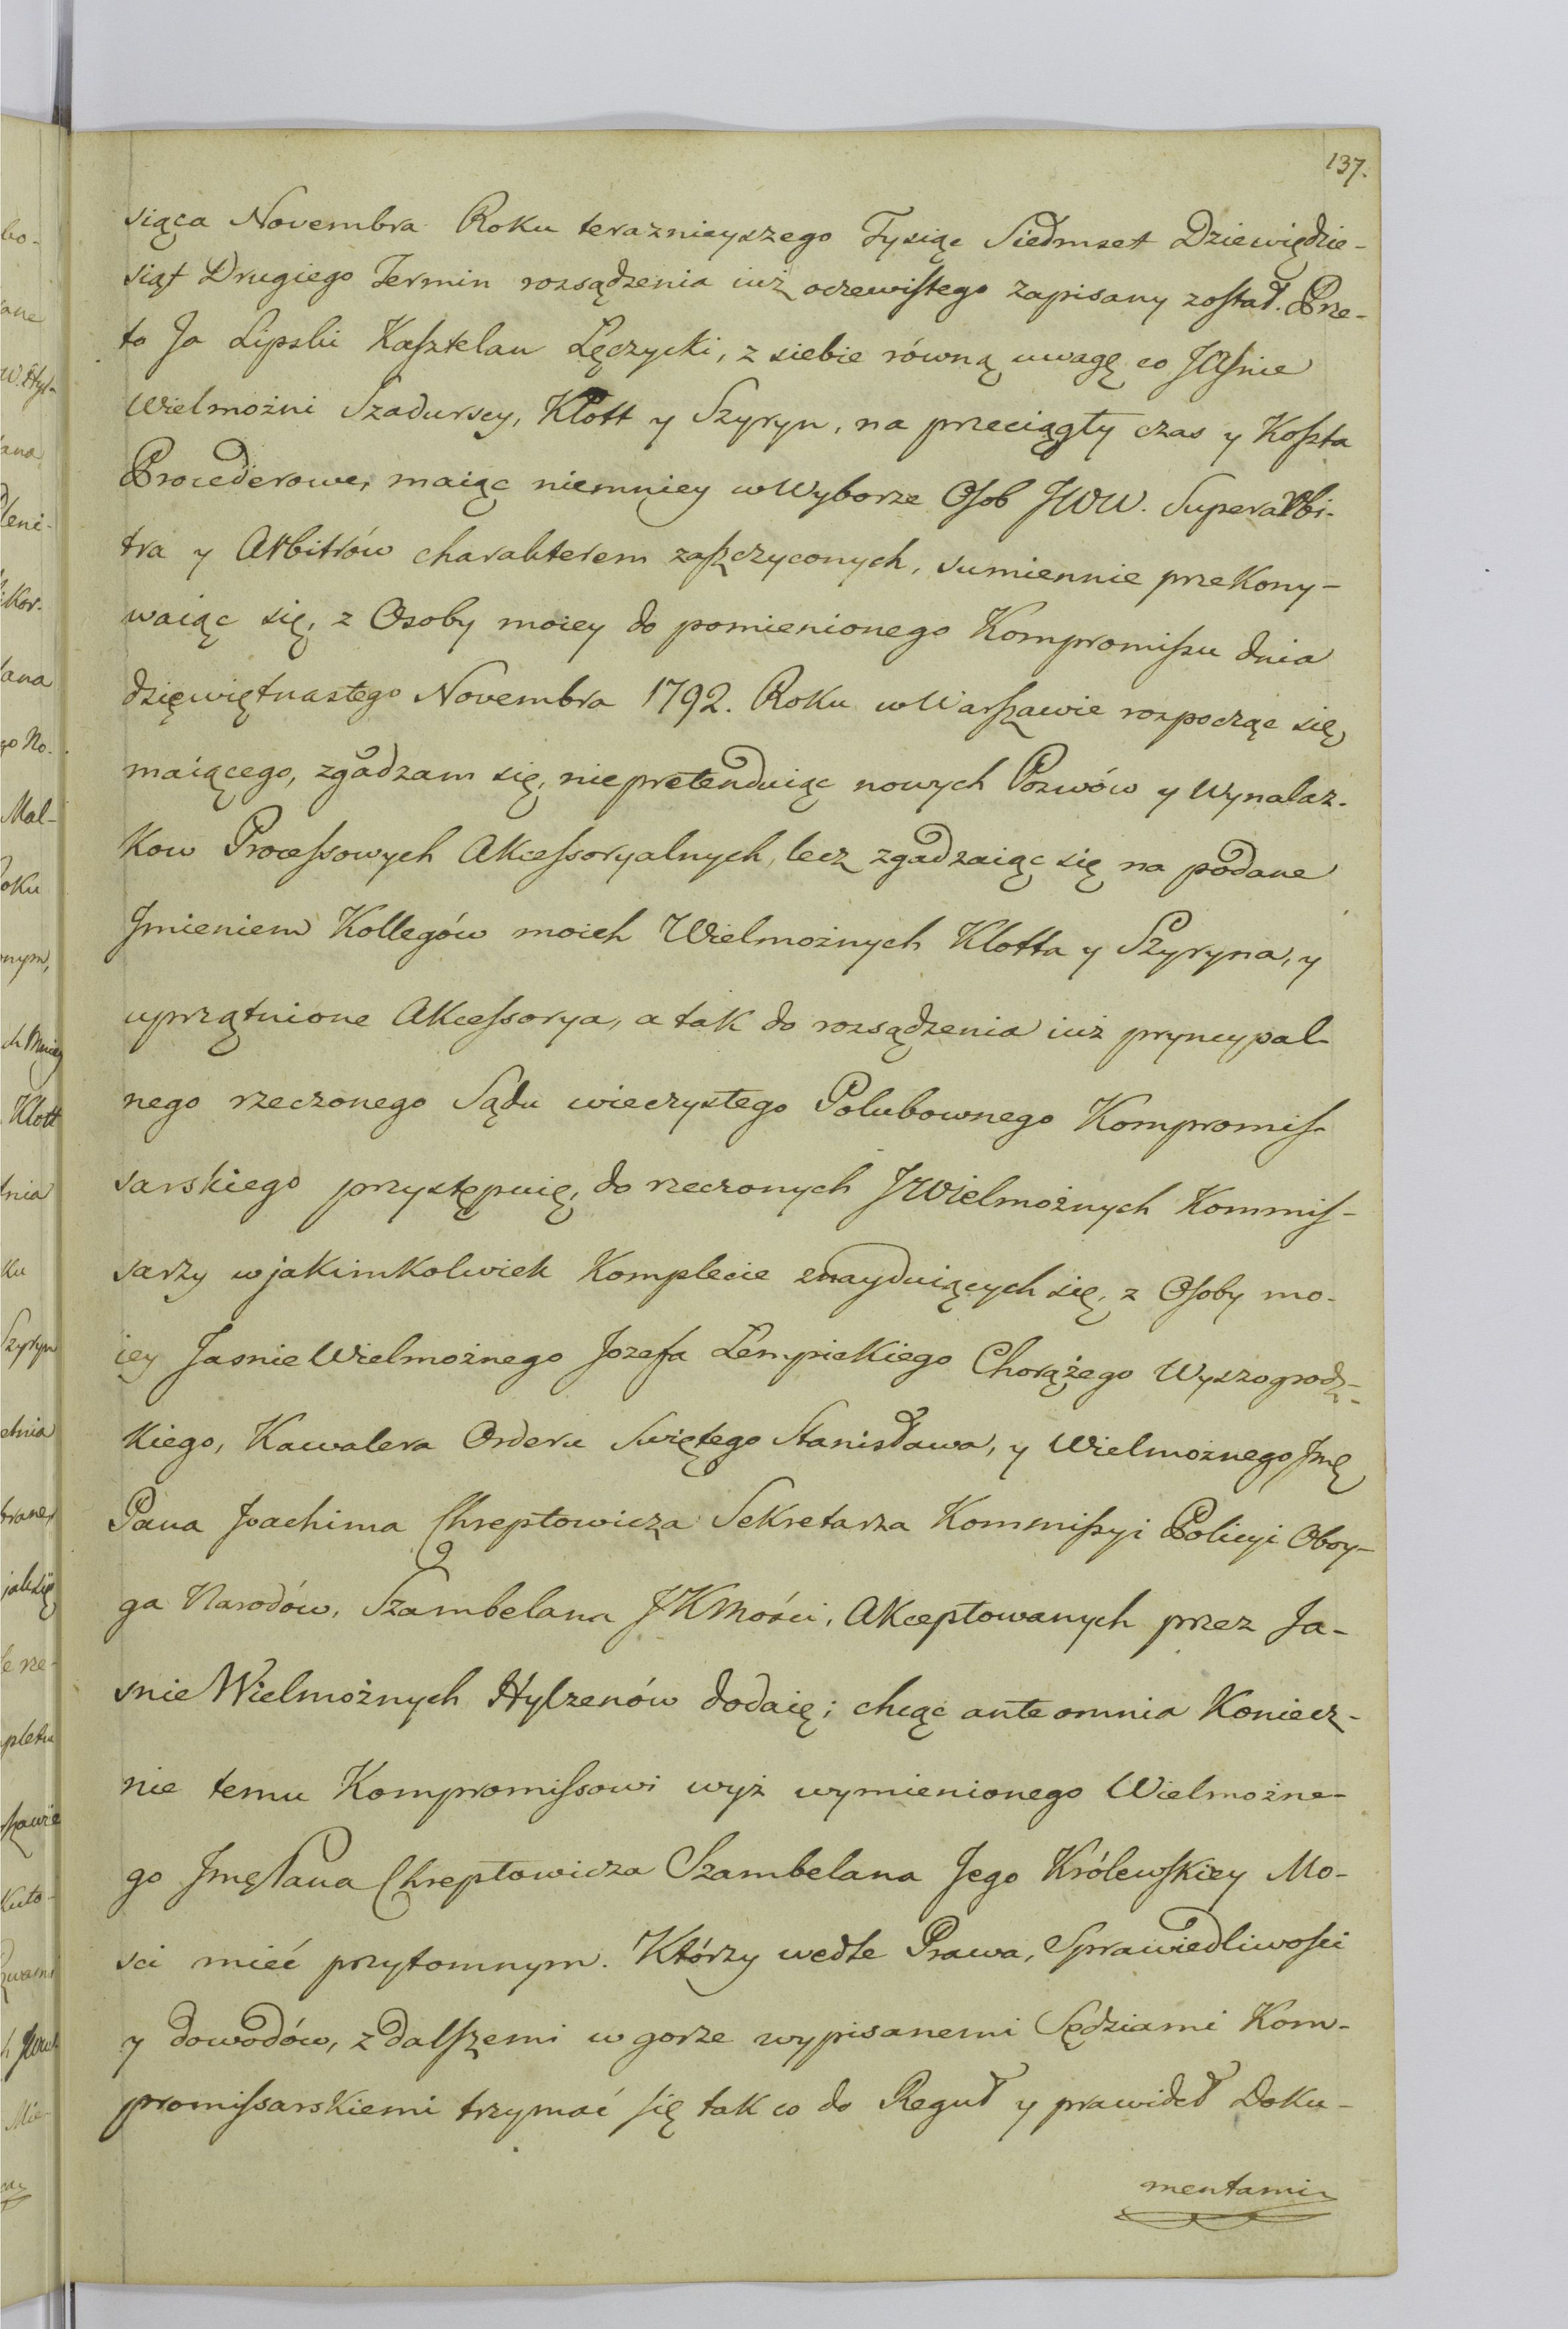 137.
siąca Novembra Roku teraznieyszego Tysiąc Siedmset Dziewiędzie-
siąt Drugiego Termin rozsądzenia iuż oczewistego zapisany został. Prze-
to Ja Lipski Kasztelan Lęczycki, z siebie równą uwagę co JAsnie
Wielmożni Szadurscy, Klott y Szyryn, na przeciągły czas y Koszta
Procederowe, maiąc niemniey w Wyborze Osob JWW. Superarbi-
tra y Arbitrów charakterem zaszczyconych, sumiennie przekony-
waiąc się, z Osoby moiey do pomienionego Kompromissu dnia
dzięwiętnastego Novembra 1792. Roku w Warszawie rozpocząc się
maiącego, zgadzam się, niepretenduiąc nowych Pozwów y Wynalaz-
kow Processowych Akcessoryalnych, lecz zgadzaiąc się na podane
Imieniem Kollegów moich Wielmożnych Klotta y Szyryna, y
uprzątnione Akcessorya, a tak do rozsądzenia iuż pryncypal-
nego rzeczonego Sądu wieczystego Polubownego Kompromis-
sarskiego przystępuię, do rzeczonych JWielmożnych Kommis-
sarzy w jakimkolwiek Komplecie znayduiących się, z Osoby mo-
iey Jasnie Wielmożnego Jozefa Lempickiego Chorążego Wyszogrodz-
kiego, Kawalera Orderu Swiętego Stanisława, y Wielmożnego Jmę
Pana Joachima Chreptowicza Sekretarza Kommissyi Policyi Oboy-
ga Narodów, Szambelana JKMości, Akceptowanych przez Ja-
snie Wielmożnych Hylzenów dodaię; chcąc ante omnia Koniecz-
nie temu Kompromissowi wyż wymienionego Wielmożne-
go Jmę Pana Chreptowicza Szambelana Jego Królewskiey Mo-
sci mieć przytomnym. Którzy wedle Prawa, Sprawiedliwości
y dowodów, z dalszemi w gorze wypisanemi Sędziami Kom-
promissarskiemi trzymać się tak co do Reguł y prawideł Doku-
mentami